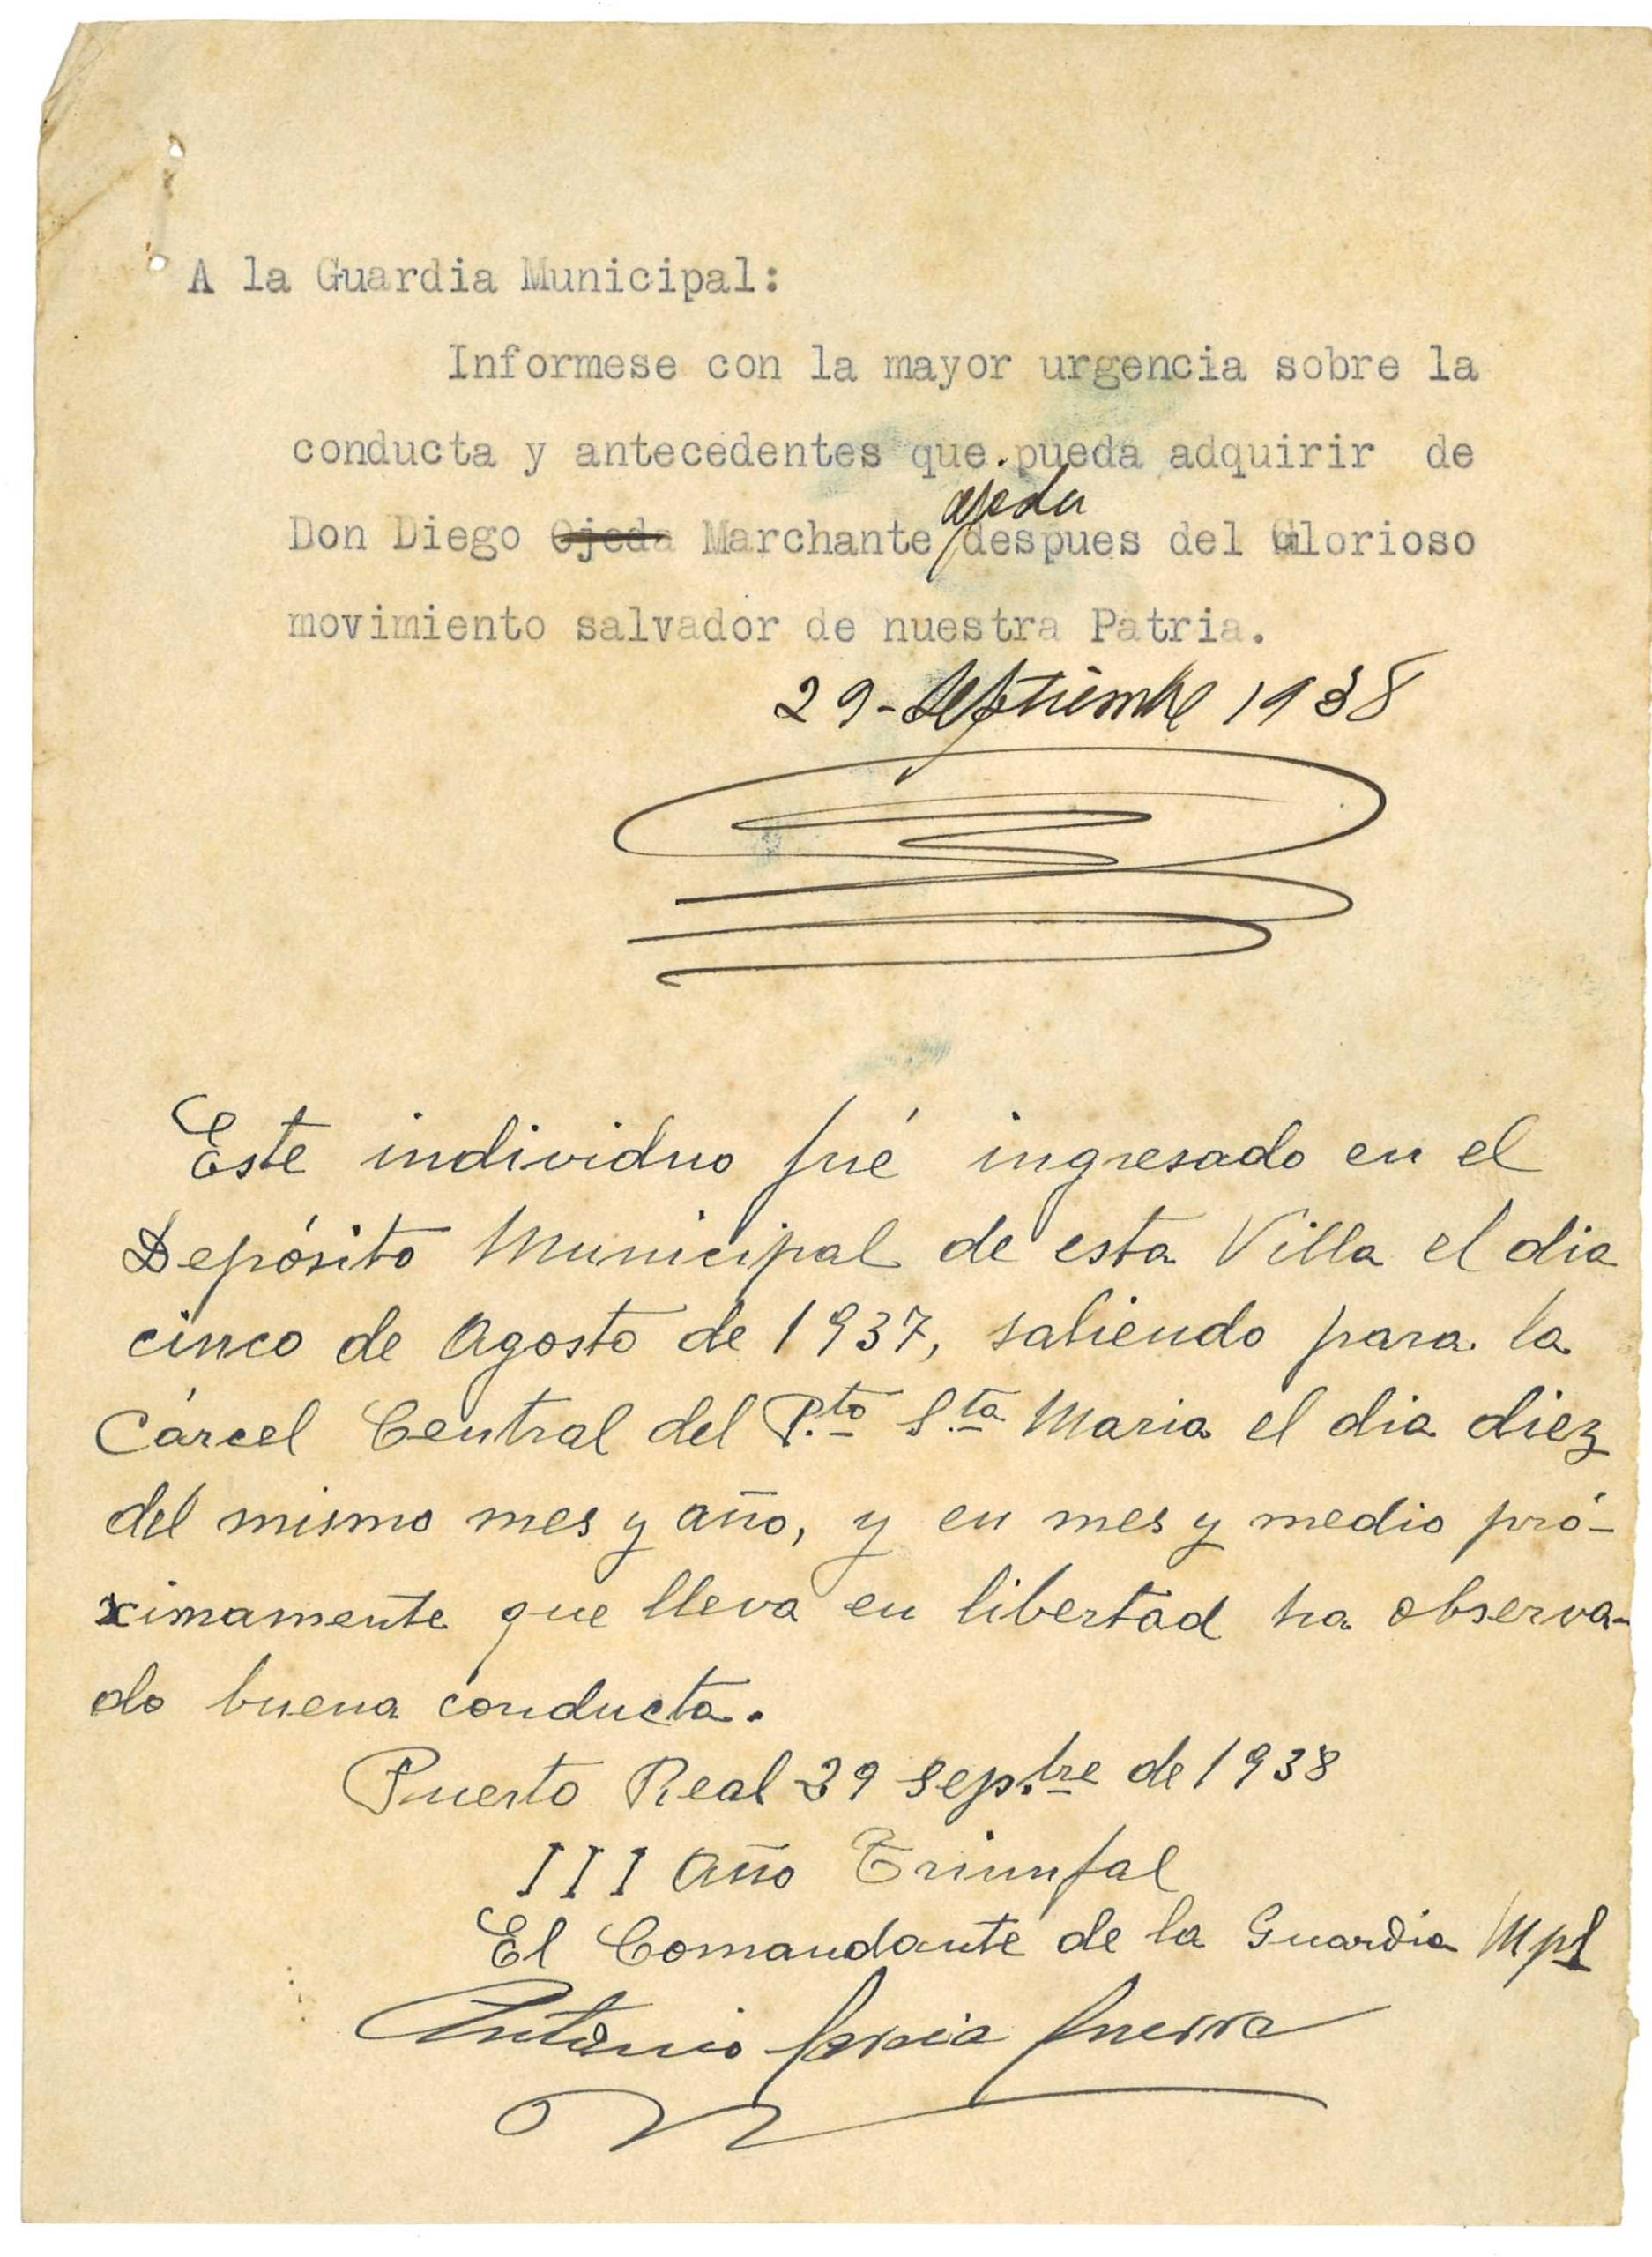 A la Guardia Municipal:
Informese con la mayor urgencia sobre la
conducta y antecedentes que pueda adquirir de
ojeda
Don Diego Ojeda Marchante despues del Glorioso
movimiento salvador de nuestra Patria.
29-Septiembre 1938
Este individuo fué ingresado en el
Depósito Municipal de esta Villa el dia
cinco de Agosto de 1937, saliendo para la
Cárcel Central del P.to S.ta Maria el dia diez
del mismo mes y año, y en mes y medio pró-
ximamente que lleva en libertad ha observa-
do buena conducta.
Puerto Real 29 Sep.bre de 1938
III Año Triunfal
El Comandante de la Guardia Mpl
Antonio Garcia Guerra